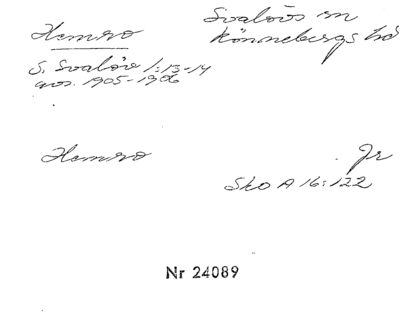 Hemro
Svalövs sn
Rönnebergs hd
S. Svalöv 1:13-14
avs. 1905-1906
Hemro
Jr
Sko A 16:122
Nr 24089